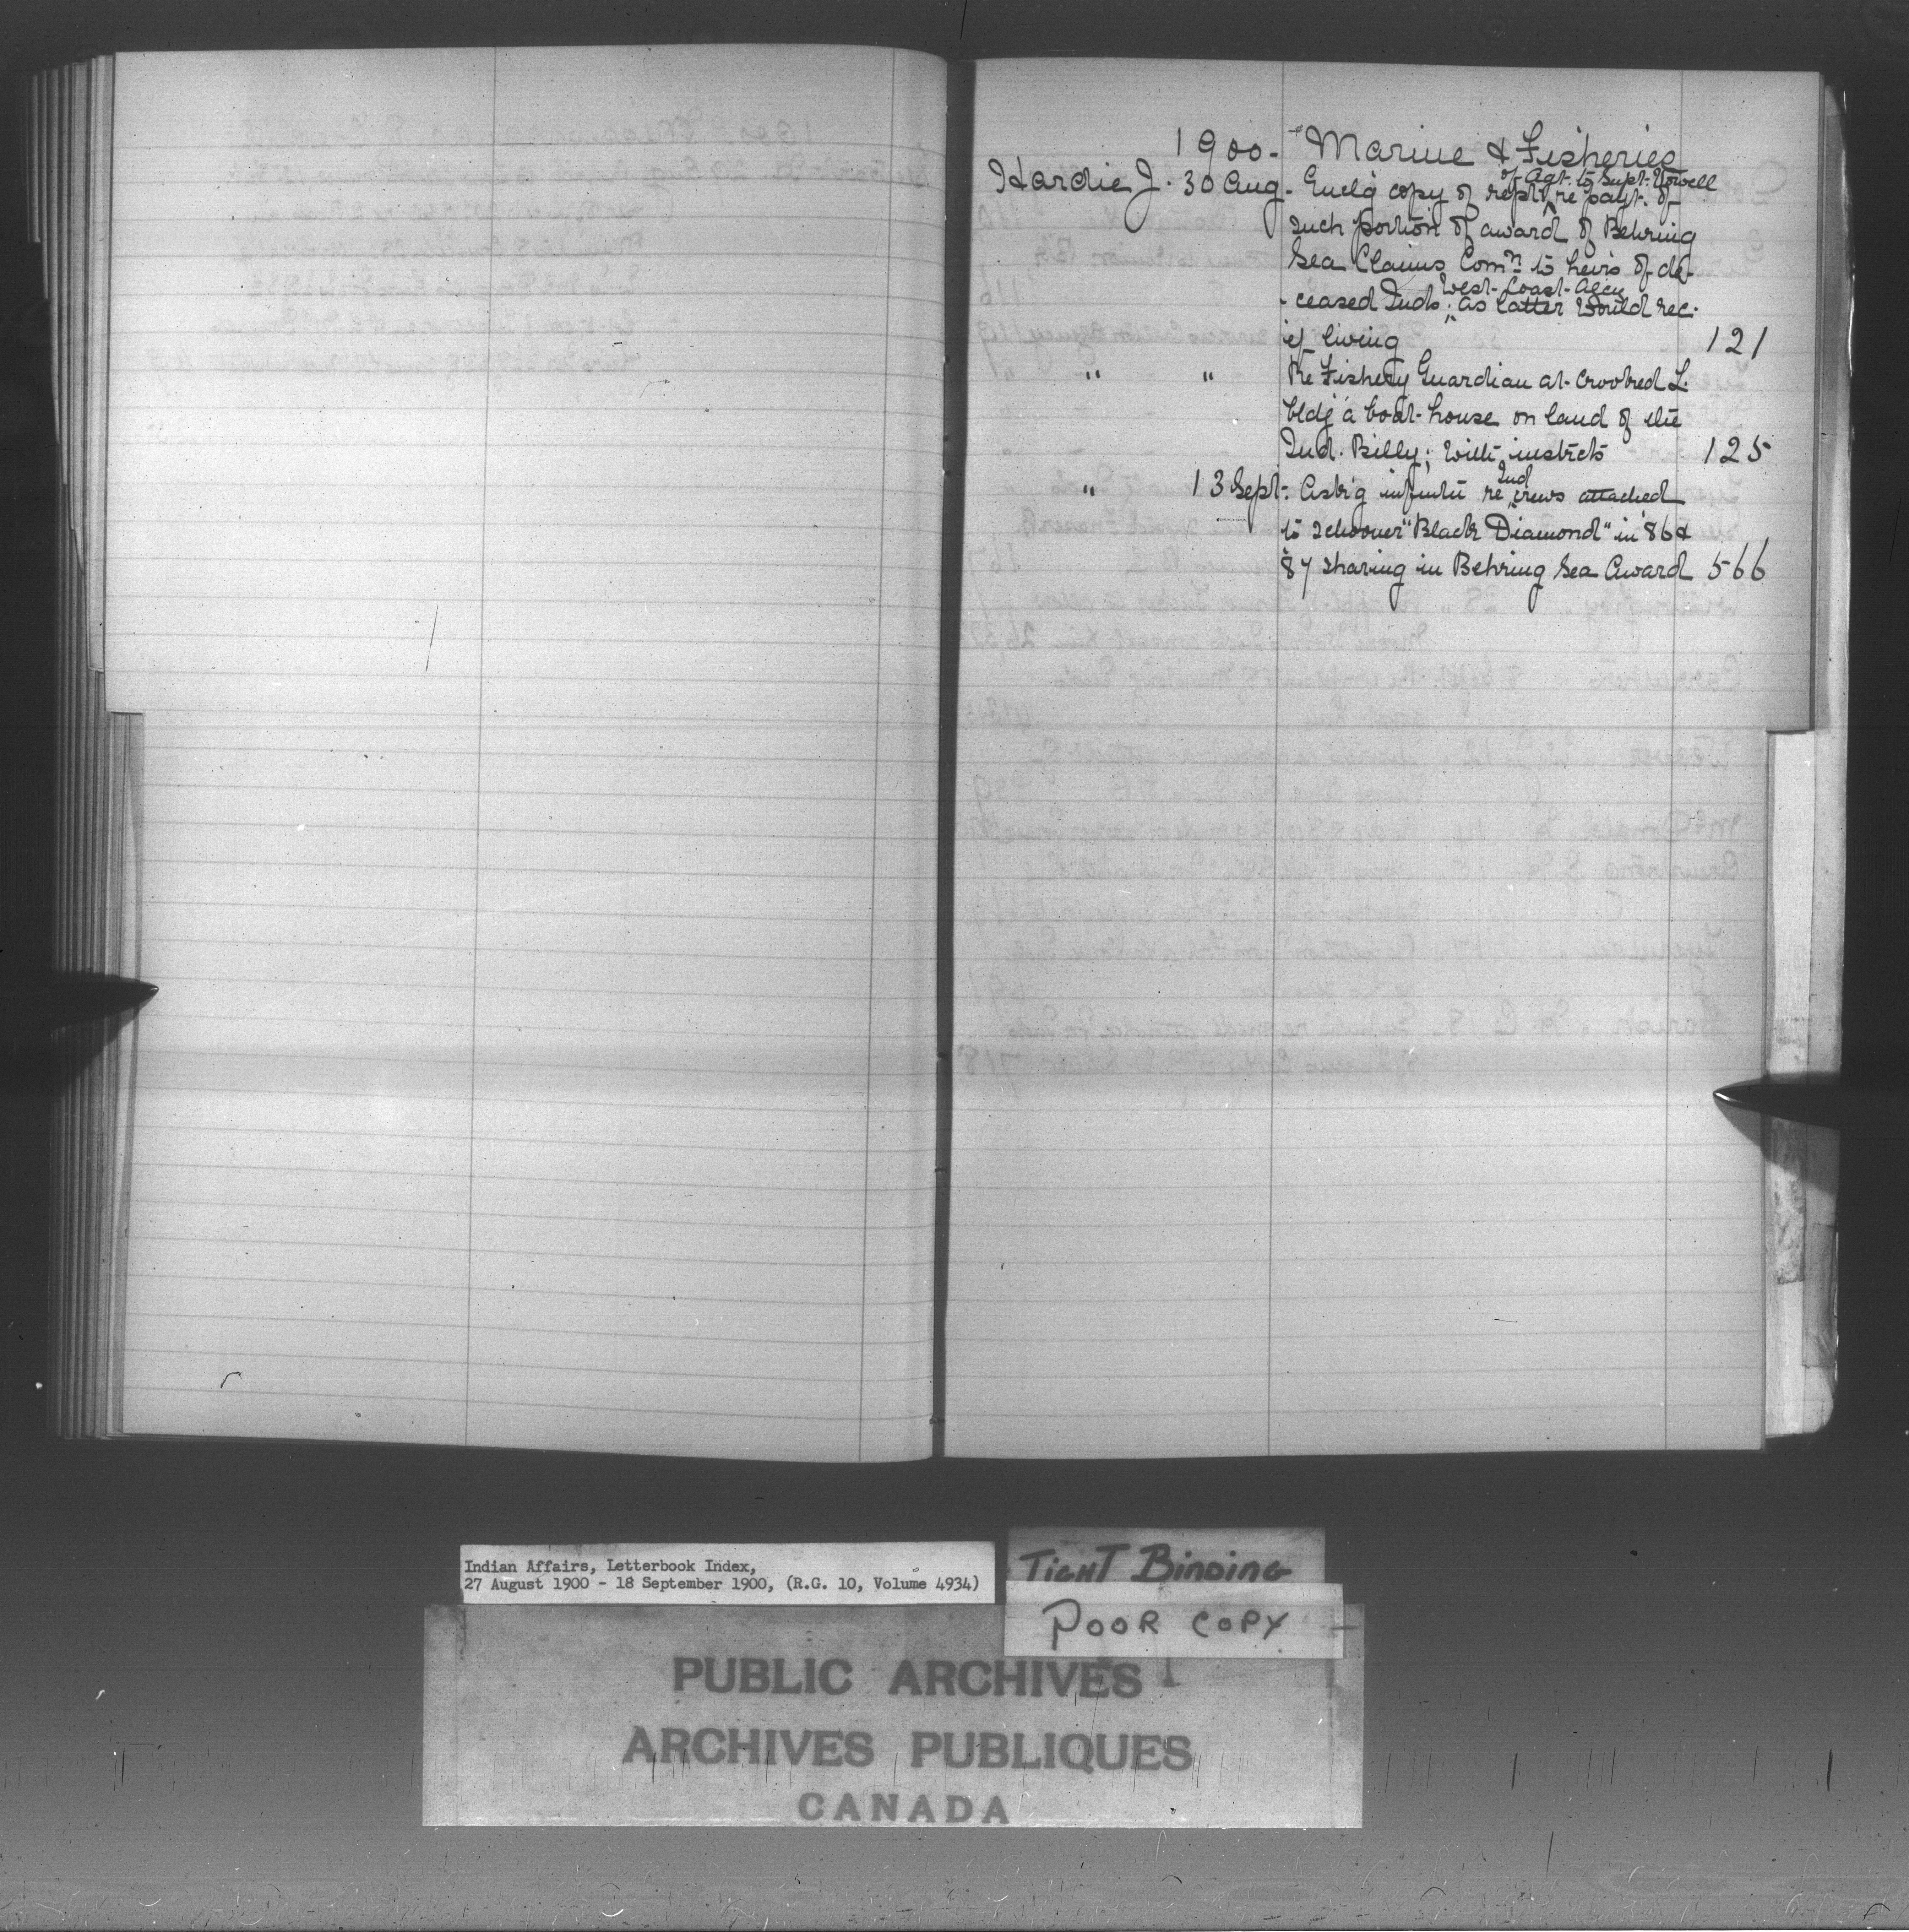 1900 - Marine & Fisheries
Hardie J. 30 Aug. - Encl'g copy of rept. of Agt. to Supt. Vowell re payt. of
such portion of award of Behring
Sea Claims Comn. to heirs of de-
ceased Inds. West Coast Agcy; as latter would rec.
if living 121
" " Re Fishery Guardian at Crooked L.
bldg a boat-house on land of the
Ind. Billy; with instrcts 125
" 13 Sept. Ask'g infmtn re Ind crews attached
to schooner "Black Diamond" in '86 &
'87 sharing in Behring Sea Award 566
Indian Affairs, Letterbook Index,
27 August 1900 - 18 September 1900, (R.G. 10, Volume 4934)
TIGHT BINDING
POOR COPY
PUBLIC ARCHIVES
ARCHIVES PUBLIQUES
CANADA